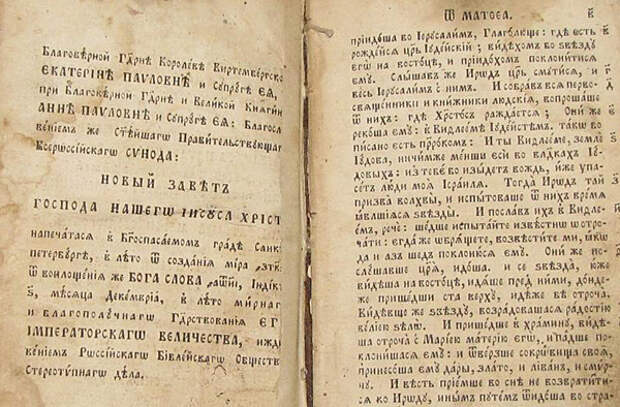 Благовѣрной Гд҇рнѣ Королевѣ Виртембергско
ЕКАТЕРІНѢ ПАѴЛОВНѢ и Супругѣ ЕѦ,
при Благовѣрной Гд҇рнѣ и Великой Княгин
АННѢ ПАѴЛОВНѢ и Супругѣ ЕѦ: Благосл
веніемъ же Ст҃ѣйшагѡ Правительствующаг
Всерѡссійскагѡ СѴНОДА:
НОВЫЙ ЗАВѢТЪ
ГОСПОДА НАШЕГѠ ІИСУСА ХРІСТ
напечатасѧ въ Бг҃оспасаемомъ градѣ Санк
петербургѣ, въ лѣто ѿ созданія міра
ѿ воплощенія же БОГА СЛОВА Індік
ѕ҃, мѣсяца Декемврія, въ лѣто мирнаг
и благополучнагѡ Гд҇рствованія ЕГ
ІМПЕРАТОРСКАГѠ ВЕЛИЧЕСТВА, ижд
веніемъ Рѡссійскагѡ Бівлейскагѡ Обществ
Стереотѵпнагѡ дѣла.
Ѿ МАТѲЕА. в҃
пріидоша во Іерусалимъ, Глаголюще: гдѣ есть
рождейся царь Іудейскій; видѣхомъ бо ѕвѣзду
егѡ на востоцѣ, и пріидохомъ поклонитися
ему. Слышавъ же Иродъ црь смѧтеся, и г
весь Іерусалимъ съ нимъ. И собравъ вся перво- д
священники и книжники людскія, вопрошаше
ѿ нихъ: гдѣ Хрістосъ раждается; Они же є
рекоша ему: въ Виѳлеемѣ Іудейстѣмъ. такѡ бо
писано есть пр҇рокомъ: И ты Виѳлееме, земле ѕ
Іудова, ничимже менши еси во владыкахъ Іу-
довыхъ: изъ тебе бо изыдетъ вождь, иже упа-
сетъ люди моя Ісраиля. Тогда Иродъ тай з
призва волхвы, и испытоваше ѿ нихъ время
явльшіяся ѕвѣзды. И пославъ ихъ въ Виѳле-
емъ, рече: шедше испытайте извѣстнѡ ѿ отро-
чати: егда же обрящете, возвѣстите ми, якѡ
да и азъ шедъ поклонюся ему. Они же по-
слушавше царя, идоша. и се ѕвѣзда, юже
видѣша на востоцѣ, идяше предъ ними, донде-
же пришедши ста верху, идѣже бѣ отроча.
Видѣвше же ѕвѣзду, возрадовашася радостію
веліею ѕѣлѡ. И пришедше въ храмину, видѣ-
ша отроча съ Маріею матерію егѡ, и падше по-
клонишася ему: и ѿверзше сокрѡвища своя,
принесоша ему дары, злато, и ліванъ, и смур-
ну. И вѣсть пріемше во снѣ не возврати-
тися ко Ироду, инымъ путемъ ѿидоша во стра-